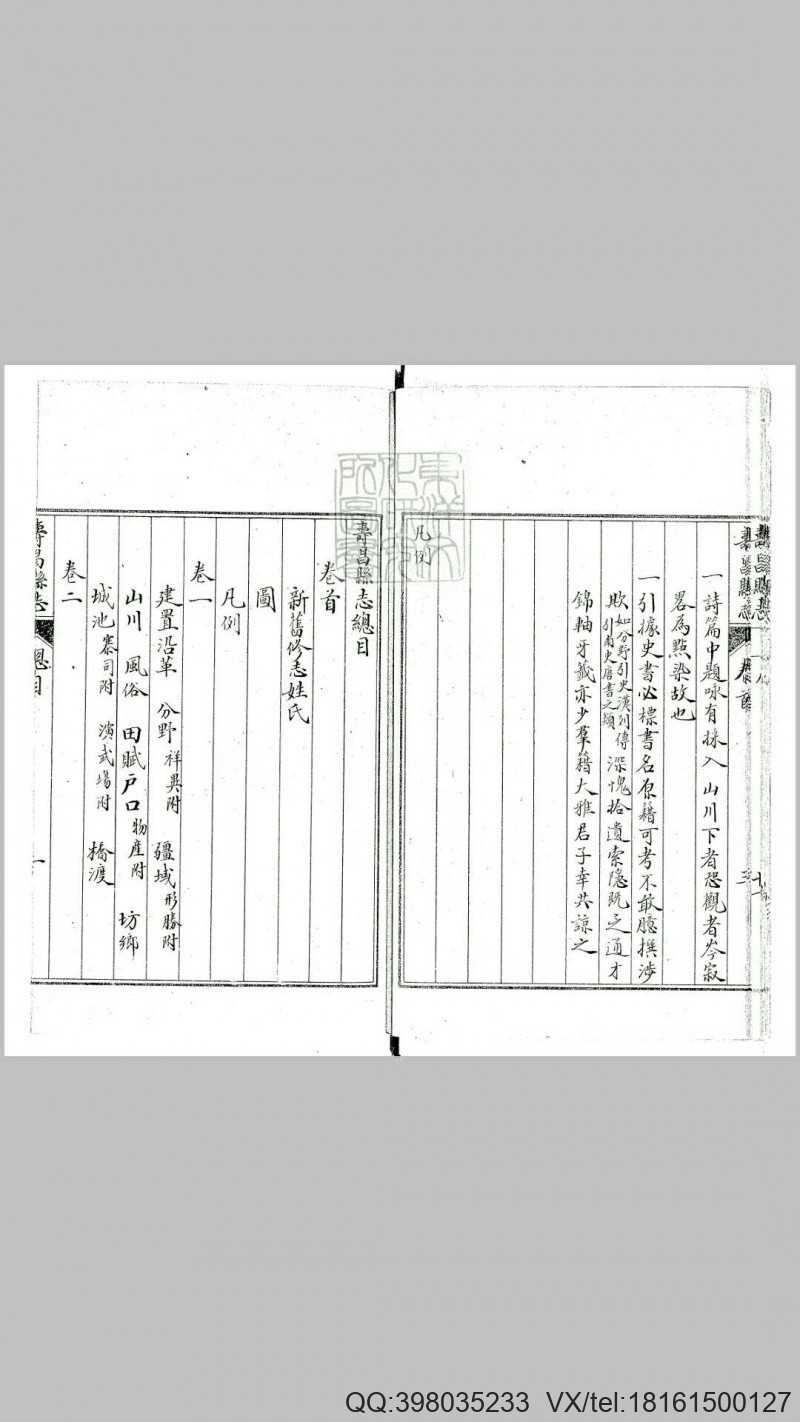 壽昌縣志 卷首
一詩篇中題咏有採入山川下者恐觀者岑寂
畧為點染故也
一引據史書必標書名原籍可考不敢臆撰涉
欺如分野引史漢列傳引南史唐書之類深愧拾遺索隱既乏通才
錦軸牙籤亦少羣籍大雅君子幸共諒之
凡例
壽昌縣志總目
卷首
新舊修志姓氏
圖
凡例
卷一
建置沿革 分野祥異附 疆域形勝附
山川 風俗 田賦戶口物產附 坊鄉
城池寨司附 演武場附 橋渡
卷二
壽昌縣志 總目 一
QQ:398035233 VX/tel:18161500127